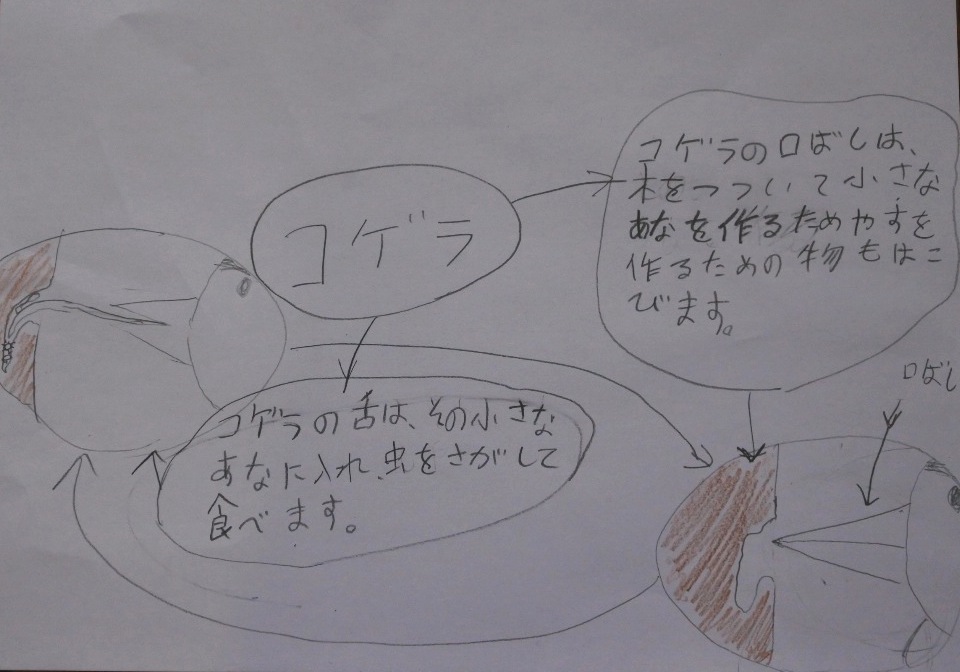 コゲラ
コゲラの口ばしは、
木をつついて小さな
あなを作るためやすを
作るための物もはこ
びます。
口ばし
コゲラの舌は、その小さな
あなに入れ、虫をさがして
食べます。